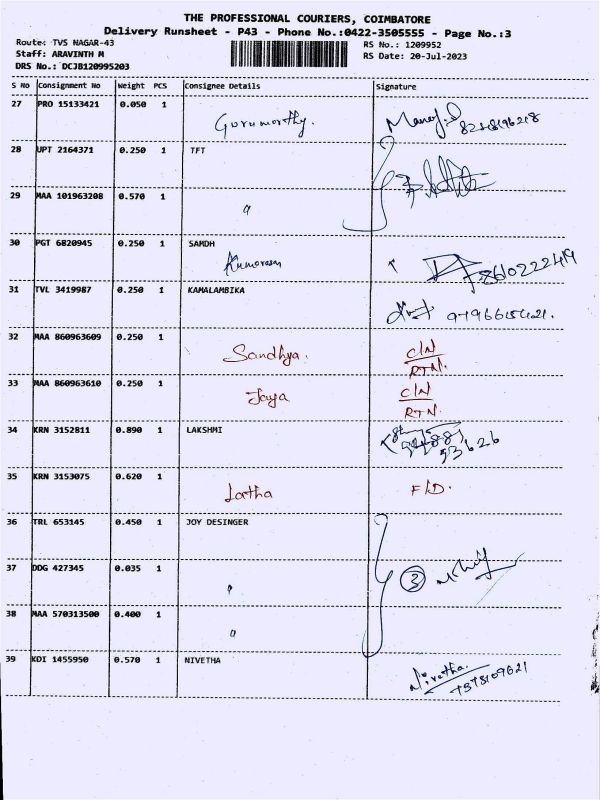 THE PROFESSIONAL COURIERS, COIMBATORE
Delivery Runsheet - P43 - Phone No.:0422-3505555 - Page No.:3
Route: TVS NAGAR-43 RS No.: 1209952
Staff: ARAVINTH M RS Date: 20-Jul-2023
DRS No.: DCJB120995203
S No Consignment No Weight PCS Consignee Details Signature
27 PRO 15133421 0.050 1 Gurumorthy.
28 UPT 2164371 0.250 1 TFT
29 MAA 101963208 0.570 1 "
30 PGT 6820945 0.250 1 SAMDH
Kumaresan
31 TVL 3419987 0.250 1 KAMALAMBIKA
32 MAA 860963609 0.250 1 Sandhya. C/N
RTN.
33 MAA 860963610 0.250 1 Jaya C/N
RTN.
34 KRN 3152811 0.890 1 LAKSHMI
35 KRN 3153075 0.620 1 Latha F/D.
36 TRL 653145 0.450 1 JOY DESINGER
37 DDG 427345 0.035 1 " 3
38 MAA 570313500 0.400 1 "
39 KDI 1455950 0.570 1 NIVETHA Nivetha.
7373109621